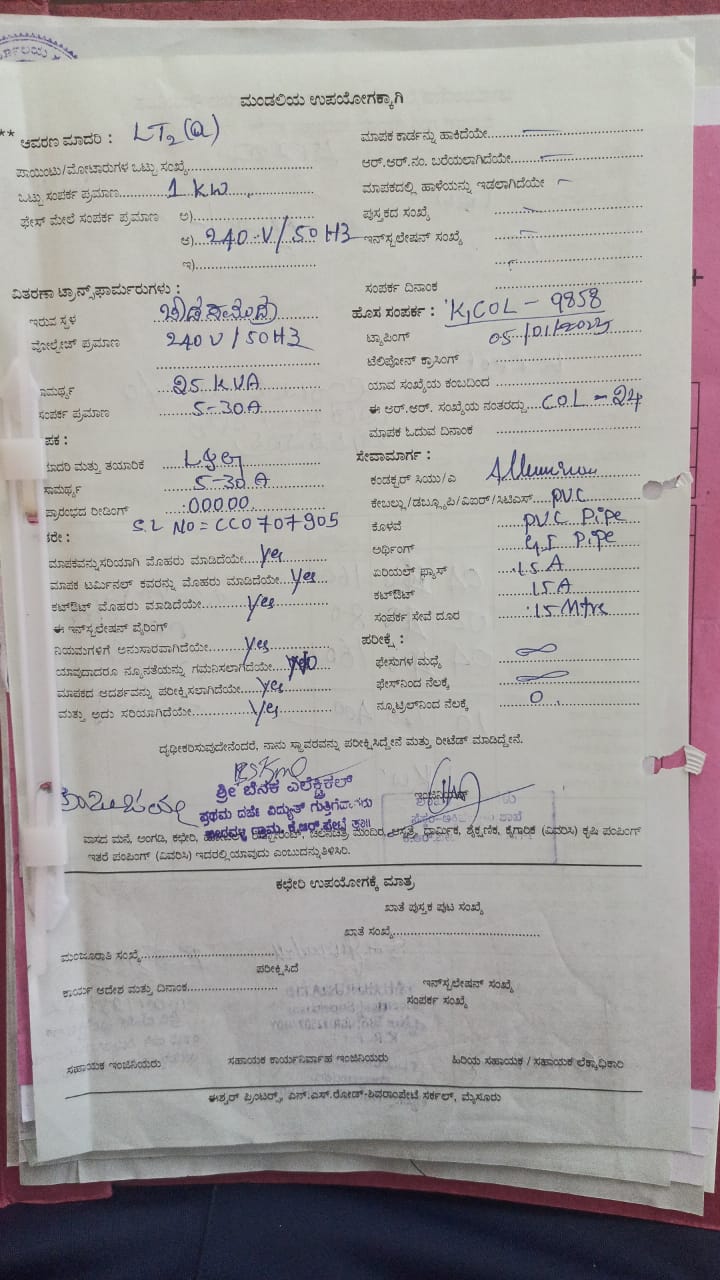 ಮಂಡಲಿಯ ಉಪಯೋಗಕ್ಕಾಗಿ
** ಆವರಣ ಮಾದರಿ : LT2 (a)
ಪಾಯಿಂಟು/ಮೋಟಾರುಗಳ ಒಟ್ಟು ಸಂಖ್ಯೆ
ಒಟ್ಟು ಸಂಪರ್ಕ ಪ್ರಮಾಣ 1 KW
ಫೇಸ್ ಮೇಲೆ ಸಂಪರ್ಕ ಪ್ರಮಾಣ ಅ)
ಆ) 240 V / 50 HZ
ಇ)
ವಿತರಣಾ ಟ್ರಾನ್ಸ್‌ಫಾರ್ಮರುಗಳು :
ಇರುವ ಸ್ಥಳ
ವೋಲ್ಟೇಜ್ ಪ್ರಮಾಣ 240 V / 50 HZ
ಸಾಮರ್ಥ್ಯ 25 KVA
ಸಂಪರ್ಕ ಪ್ರಮಾಣ 5-30A
ಪಕ :
ಮಾದರಿ ಮತ್ತು ತಯಾರಿಕೆ L&G
ಸಾಮರ್ಥ್ಯ 5-30.A
ಪ್ರಾರಂಭದ ರೀಡಿಂಗ್ :00000.
S.L NO = CC0707905
ಕರೇ :
ಮಾಪಕವನ್ನು ಸರಿಯಾಗಿ ಮೊಹರು ಮಾಡಿದೆಯೇ yes
ಮಾಪಕ ಟರ್ಮಿನಲ್ ಕವರನ್ನು ಮೊಹರು ಮಾಡಿದೆಯೇ yes
ಕಟ್‌ಔಟ್ ಮೊಹರು ಮಾಡಿದೆಯೇ yes
ಈ ಇನ್‌ಸ್ಟಲೇಷನ್ ವೈರಿಂಗ್
ನಿಯಮಗಳಿಗೆ ಅನುಸಾರವಾಗಿದೆಯೇ yes
ಯಾವುದಾದರೂ ನ್ಯೂನತೆಯನ್ನು ಗಮನಿಸಲಾಗಿದೆಯೇ No
ಮಾಪಕದ ಆದರ್ಶವನ್ನು ಪರೀಕ್ಷಿಸಲಾಗಿದೆಯೇ yes
ಮತ್ತು ಅದು ಸರಿಯಾಗಿದೆಯೇ yes
ಮಾಪಕ ಕಾರ್ಡನ್ನು ಹಾಕಿದೆಯೇ
ಆರ್.ಆರ್.ನಂ. ಬರೆಯಲಾಗಿದೆಯೇ
ಮಾಪಕದಲ್ಲಿ ಹಾಳೆಯನ್ನು ಇಡಲಾಗಿದೆಯೇ
ಪುಸ್ತಕದ ಸಂಖ್ಯೆ
ಇನ್‌ಸ್ಟಲೇಷನ್ ಸಂಖ್ಯೆ
ಸಂಪರ್ಕ ದಿನಾಂಕ
ಹೊಸ ಸಂಪರ್ಕ : K,COL - 9858
ಟ್ಯಾಪಿಂಗ್ 05/01/2025
ಟೆಲಿಫೋನ್ ಕ್ರಾಸಿಂಗ್
ಯಾವ ಸಂಖ್ಯೆಯ ಕಂಬದಿಂದ
ಈ ಆರ್.ಆರ್. ಸಂಖ್ಯೆಯ ನಂತರದ್ದು COL - 24
ಮಾಪಕ ಓದುವ ದಿನಾಂಕ
ಸೇವಾಮಾರ್ಗ :
ಕಂಡಕ್ಟರ್ ಸಿಯು/ಎ
ಕೇಬಲ್ಲು/ಡಬ್ಲ್ಯೂಪಿ/ವಿಐಆರ್/ಸಿಟಿಎಸ್ PVC
ಕೊಳವೆ PVC PiPe
ಅರ್ಥಿಂಗ್ G.I PiPe
ಏರಿಯಲ್ ಫ್ಯೂಸ್ 15 A
ಕಟ್‌ಔಟ್ 15 A
ಸಂಪರ್ಕ ಸೇವೆ ದೂರ :15 Mtre
ಪರೀಕ್ಷೆ :
ಫೇಸುಗಳ ಮಧ್ಯೆ ∞
ಫೇಸ್‌ನಿಂದ ನೆಲಕ್ಕೆ ∞
ನ್ಯೂಟ್ರಲ್‌ನಿಂದ ನೆಲಕ್ಕೆ 0
ದೃಢೀಕರಿಸುವುದೇನೆಂದರೆ, ನಾನು ಸ್ಥಾವರವನ್ನು ಪರೀಕ್ಷಿಸಿದ್ದೇನೆ ಮತ್ತು ರೀಟೆಡ್ ಮಾಡಿದ್ದೇನೆ.
ಶ್ರೀ ಬೆನಕ ಎಲೆಕ್ಟ್ರಿಕಲ್
ಪ್ರಥಮ ದರ್ಜೆ ವಿದ್ಯುತ್ ಗುತ್ತಿಗೆದಾರರು
ಗ್ರಾಮ, ಕೆ.ಆರ್.ಪೇಟೆ ತಾ||
ಇಂಜಿನಿಯರ್
ವಾಸದ ಮನೆ, ಅಂಗಡಿ, ಕಛೇರಿ, ಚಲನಚಿತ್ರ ಮಂದಿರ, ಆಸ್ಪತ್ರೆ, ಧಾರ್ಮಿಕ, ಶೈಕ್ಷಣಿಕ, ಕೈಗಾರಿಕೆ (ವಿವರಿಸಿ) ಕೃಷಿ ಪಂಪಿಂಗ್
ಇತರೆ ಪಂಪಿಂಗ್ (ವಿವರಿಸಿ) ಇದರಲ್ಲಿ ಯಾವುದು ಎಂಬುದನ್ನು ತಿಳಿಸಿರಿ.
ಕಛೇರಿ ಉಪಯೋಗಕ್ಕೆ ಮಾತ್ರ
ಖಾತೆ ಪುಸ್ತಕ ಪುಟ ಸಂಖ್ಯೆ
ಖಾತೆ ಸಂಖ್ಯೆ
ಮಂಜೂರಾತಿ ಸಂಖ್ಯೆ
ಪರೀಕ್ಷಿಸಿದೆ
ಕಾರ್ಯ ಆದೇಶ ಮತ್ತು ದಿನಾಂಕ
ಇನ್‌ಸ್ಟಲೇಷನ್ ಸಂಖ್ಯೆ
ಸಂಪರ್ಕ ಸಂಖ್ಯೆ
ಸಹಾಯಕ ಇಂಜಿನಿಯರು ಸಹಾಯಕ ಕಾರ್ಯನಿರ್ವಾಹ ಇಂಜಿನಿಯರು ಹಿರಿಯ ಸಹಾಯಕ / ಸಹಾಯಕ ಲೆಕ್ಕಾಧಿಕಾರಿ
ಈಶ್ವರ್ ಪ್ರಿಂಟರ್ಸ್, ಎನ್.ಎಸ್.ರೋಡ್-ಶಿವರಾಂಪೇಟೆ ಸರ್ಕಲ್, ಮೈಸೂರು